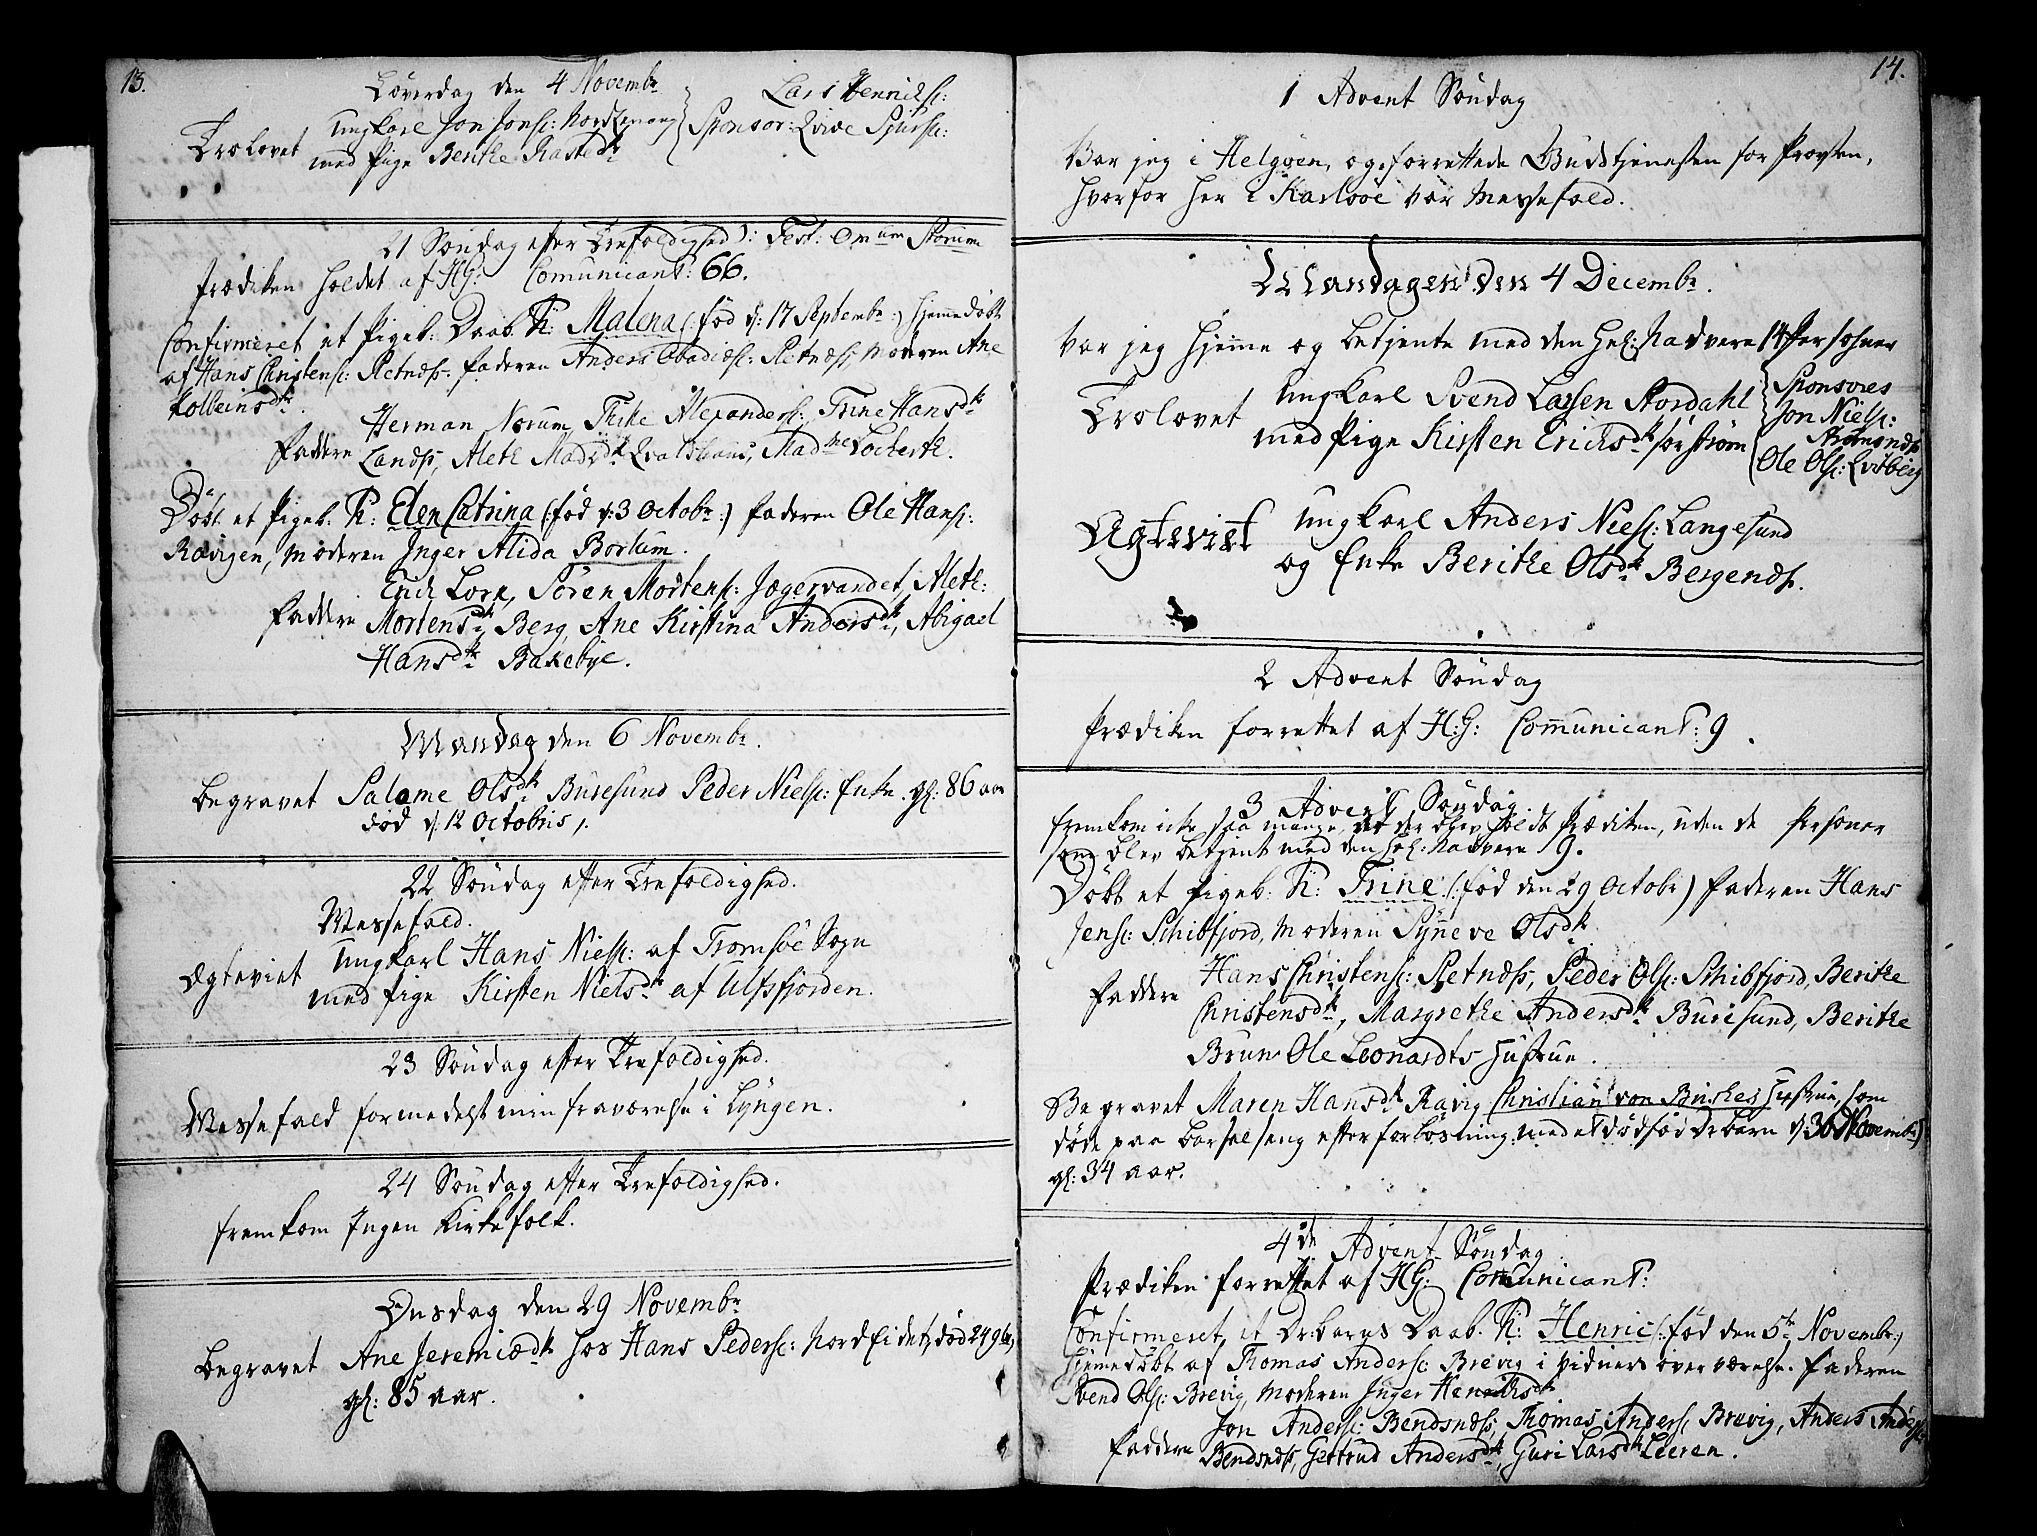 13.
Løverdag den 4 Novembr
Lars Henrichs:
Trolovet
Ungkarl Jon Jons: Nordtzmang
Sponsor:
med Pige Berithe
21 Søndag efter Trefoldighed : Fest: Omnium Storum
Prædiken holdet af HG: Comunicant: 66.
Confirmeret et Pigeb: Daab. N: Malena (: fød d: 17 Septembr :) hjemmedøbt
af Hans Christens: Retnæss faderen Anders Abadiæs: Retnæss, Moderen Ane
Kolbeinsdtr.
Faddere
Herman Norum, Alexanders:, Trine Hansdtr
Aleth Madsdtr, Madme Lochertz.
Døbt et Pigeb. N: Elen Catrina (: fød d: 3 Octobr :) Faderen Ole Hans:
Ravigen, Moderen Inger Alida Bortum.
Faddere
Erich Lorx, Søren Mortens: Jægervandet, Aleth:
Mortensdtr Berg, Ane Kirstina Andersdtr, Abigael
Hansdtr Bakebye.
Mandag den 6 Novembr.
Begravet Salame Olsdtr Buresund Peder Niels: Enke. gl: 86 aar
død d: 12 Octobris.
22 Søndag efter Trefoldighed.
Messefald.
Ægteviet
Ungkarl Hans Niels: af Tromsøe Sogn
med Pige Kirsten Nielsdtr af Ulfsfjorden.
23 Søndag efter Trefoldighed.
Messefald formedelst min fraværelse i Lyngen.
24 Søndag efter Trefoldighed.
fremkom Ingen Kirkefolk.
Onsdag den 29 Novembr
Begravet Ane Jeremiædtr hos Hans Peders: Nordeidet, død 24 9br,
gl: 85 aar.
14.
1 Advent Søndag
Var jeg i Helgøen, og forrettede Gudstjenesten for Provsten,
hvorfor her i Karlsøe var Messefald.
Mandagen den 4 Decembr.
Var jeg hjemme og betjente med den hel: Nadvere 14 Persohner
Trolovet
Ungkarl Svend Larsen Stordahl
med Pige Kirsten Erichsdtr Sørstrøm
Sponsores
Jon Niels:
Ole Ols:
Ægteviet
Ungkarl Anders Niels: Langesund
og Enke Berithe Olsdtr Bergenæs.
2 Advent Søndag
Prædiken forrettet af H:G: Comunicant: 9.
3 Advent Søndag.
fremkom icke saa mange, at der blev holdt Prædiken, uden de Personer
som blev betjent med den hel: Nadvere 9.
Døbt et Pigeb: N: Trine (: fød den 29 Octobr) Faderen Hans
Jens: Schibsfjord, Moderen Synneve Olsdtr
Faddere
Hans Christens: Retnæss, Peder Ols: Schibsfjord, Berithe
Christensdtr, Margrethe Andersdtr Buresund, Berithe
Brun Ole Leonardts Hustrue.
Begravet Maren Hansdtr Ravig Christian von Buskes Hustrue, som
døde paa barselseng efter forløsning med et dødfødde barn d: 30 Novembr)
gl: 34 aar.
4de Advent Søndag
Prædiken forrettet af HG: Comunicant:
Confirmeret et Dr:barns Daab. N: Henric (: fød den 5te Novembr:)
hjemedøbt af Thomas Anders: Brevig i vidners overværelse. Faderen
Svend Ols: Brevig, Moderen Inger Henrichsdtr
Faddere
Jon Anders: Bendsnæs, Thomas Anders: Brevig, Anders Anders:
Bendsnæs, Gertrud Andersdtr, Guri Larsdtr Leeren.